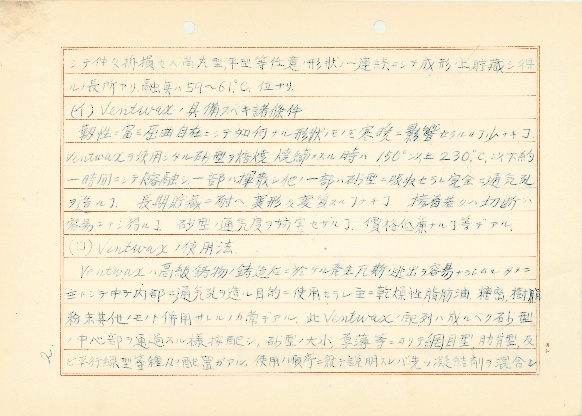 シテ什々折損セス高尤型平型等任意ノ形狀ノ一連鎖ニシテ成形上貯藏シ得
ル長所アリ、融点ハ59〜61℃位ナリ
(イ) Ventwaxノ具備スベキ諸條件
靱性ニ富ミ屈曲自在ニシテ如何ナル形狀ノモノモ寒暖ニ影響セラルヽ少ナキ
Ventwaxヲ使用シタル砂型ヲ焙燒スル時ハ150°以上230℃以下約
一時間ニシテ熔融シ一部ハ揮散シ他ノ一部ハ砂型ニ吸收セラレ完全ニ通気孔
ヲ造ル 長期貯藏ニ耐ヘ変形変質スル ナキ 切断
容易ニシテ 砂型ノ通気度ヲ妨害セザル 價格低廉ナル 等デアル
(ロ) Ventwaxノ使用法
Ventwaxハ高級鋳物ノ鋳造在ニ於ケル発生瓦斯ノ逃出ヲ容易ナラシムルタメニ
主トシテ中子内部ニ通気孔ヲ造ル目的ニ使用セラレ主ニ乾燥性脂肪油、糖密、樹脂
粉末其他ノモノト併用サレルノカ常デアル。此Ventwaxノ配列ハ成ルベク砂型
ノ中心部ヲ通過スル様按配シ、砂型ノ大小、厚薄等ニヨリテ網目型、肋骨型、及
ビ平行線型等種々ノ配置ガアル。使用ノ順序ニ就テ説明スレバ先ヅ凝結剤ヲ混合シ
2.